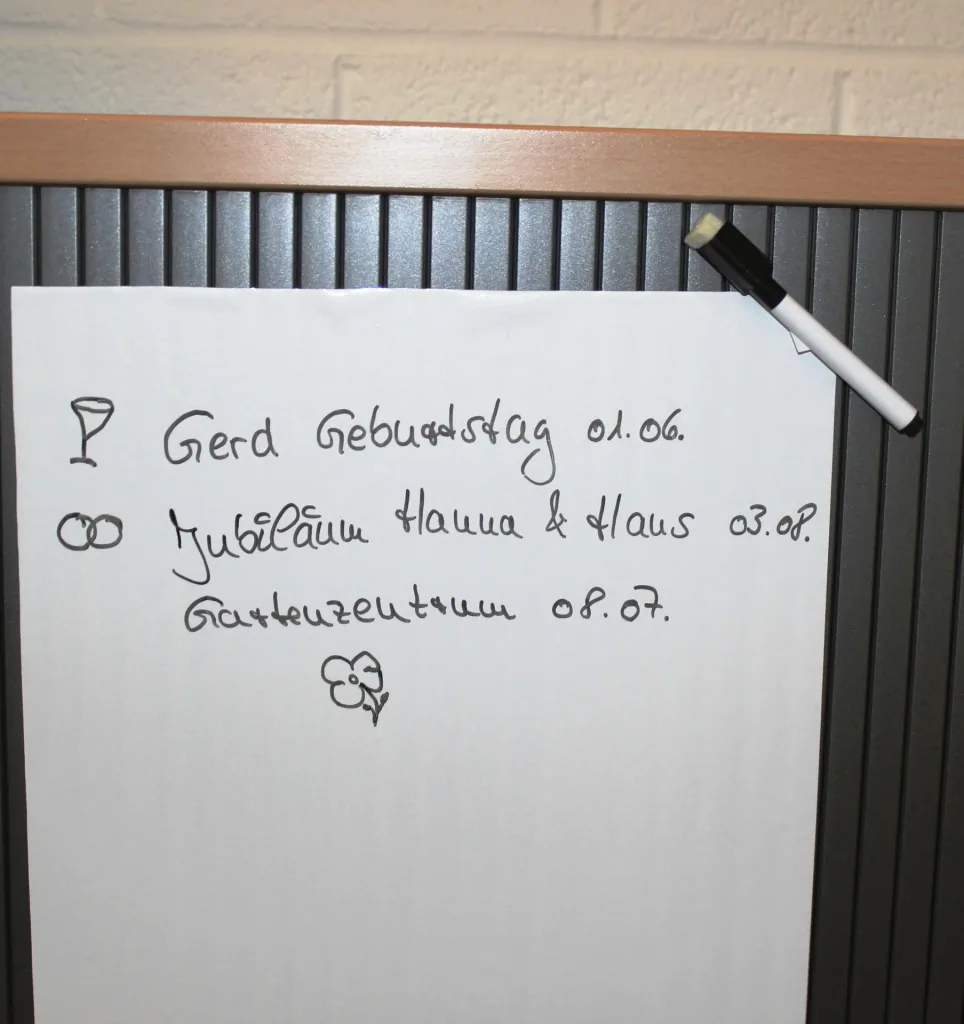 Gerd Geburtstag 01.06.
Jubiläum Hanna & Hans 03.08.
Gartenzentrum 08.07.